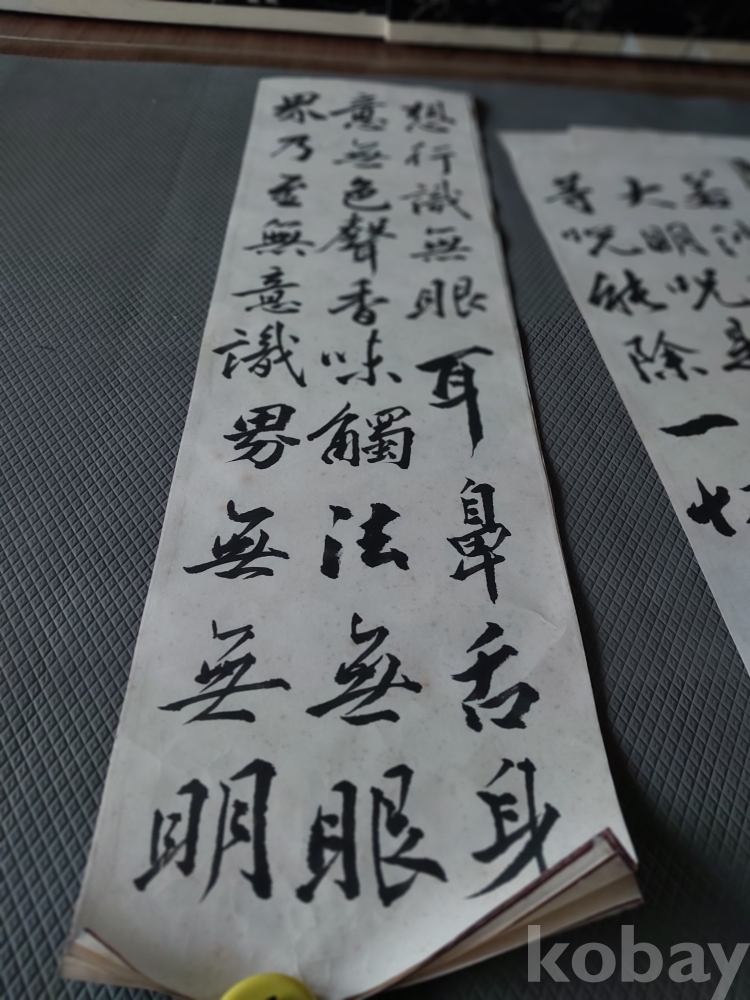 若
大明咒是
等咒能除一切
想行識無眼耳鼻舌身
意無色聲香味觸法無眼
界乃至無意識界無無明
kobay